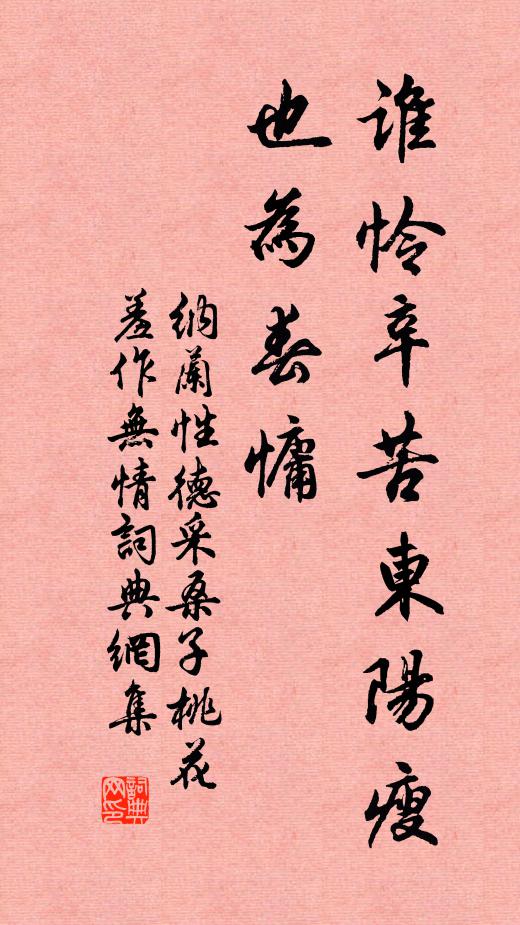 誰怜辛苦東陽瘦
也為春慵
納蘭性德采桑子桃花
羞作無情詞典網集
詞典網印